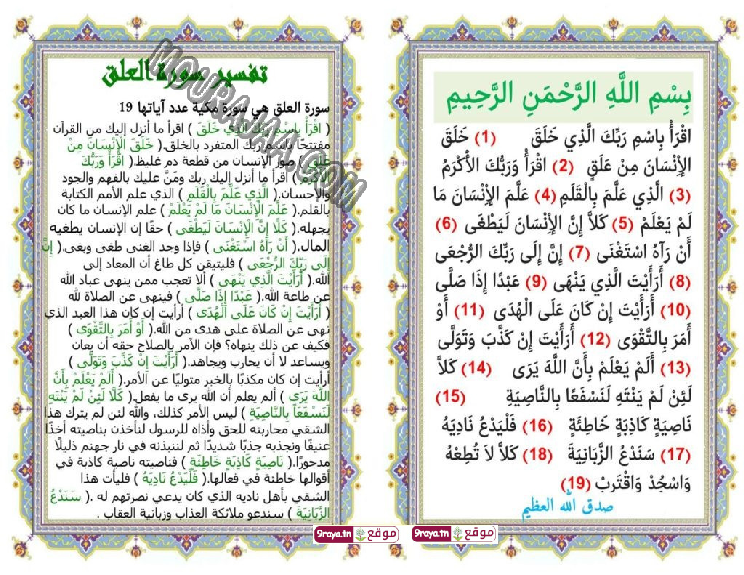 بِسْمِ اللَّهِ الرَّحْمَنِ الرَّحِيمِ
اقْرَأْ بِاسْمِ رَبِّكَ الَّذِي خَلَقَ (1) خَلَقَ
الْإِنْسَانَ مِنْ عَلَقٍ (2) اقْرَأْ وَرَبُّكَ الْأَكْرَمُ
(3) الَّذِي عَلَّمَ بِالْقَلَمِ (4) عَلَّمَ الْإِنْسَانَ مَا
لَمْ يَعْلَمْ (5) كَلاَّ إِنَّ الْإِنْسَانَ لَيَطْغَى (6)
أَنْ رَآهُ اسْتَغْنَى (7) إِنَّ إِلَى رَبِّكَ الرُّجْعَى
(8) أَرَأَيْتَ الَّذِي يَنْهَى (9) عَبْدًا إِذَا صَلَّى
(10) أَرَأَيْتَ إِنْ كَانَ عَلَى الْهُدَى (11) أَوْ
أَمَرَ بِالتَّقْوَى (12) أَرَأَيْتَ إِنْ كَذَّبَ وَتَوَلَّى
(13) أَلَمْ يَعْلَمْ بِأَنَّ اللَّهَ يَرَى (14) كَلاَّ
لَئِنْ لَمْ يَنْتَهِ لَنَسْفَعًا بِالنَّاصِيَةِ (15)
نَاصِيَةٍ كَاذِبَةٍ خَاطِئَةٍ (16) فَلْيَدْعُ نَادِيَهُ
(17) سَنَدْعُ الزَّبَانِيَةَ (18) كَلاَّ لاَ تُطِعْهُ
وَاسْجُدْ وَاقْتَرِبْ (19)
صدق الله العظيم
موقع 9raya.tn
تفسير سورة العلق
سورة العلق هي سورة مكية عدد آياتها 19
( اقْرَأْ بِاسْمِ رَبِّكَ الَّذِي خَلَقَ ) اقرأ ما أنزل إليك من القرآن
مفتتحًا باسم ربك المتفرد بالخلق.( خَلَقَ الْإِنْسَانَ مِنْ
عَلَقٍ ) صوّر الإنسان من قطعة دم غليظ.( اقْرَأْ وَرَبُّكَ
اقرأ ما أنزل إليك ربك ومَنَّ عليك بالفهم والجود
والإحسان.( الَّذِي عَلَّمَ بِالْقَلَمِ ) الذي علم الأمم الكتابة
بالقلم.( عَلَّمَ الْإِنْسَانَ مَا لَمْ يَعْلَمْ ) علم الإنسان ما كان
يجهله.( كَلَّا إِنَّ الْإِنْسَانَ لَيَطْغَى ) حقًا إن الإنسان يطغيه
المال.( أَنْ رَآهُ اسْتَغْنَى ) فإذا وجد الغنى طغى وبغى.( إِنَّ
إِلَى رَبِّكَ الرُّجْعَى ) فليتيقن كل طاغ أن المعاد إلى
الله.( أَرَأَيْتَ الَّذِي يَنْهَى ) ألا تعجب ممن ينهى عباد الله
عن طاعة الله.( عَبْدًا إِذَا صَلَّى ) فينهى عن الصلاة لله
( أَرَأَيْتَ إِنْ كَانَ عَلَى الْهُدَى ) أرأيت إن كان هذا العبد الذي
نهى عن الصلاة على هدى من الله.( أَوْ أَمَرَ بِالتَّقْوَى )
فكيف عن ذلك ينهاه؟ فإن الآمر بالصلاح حقه أن يعان
ويساعد لا أن يحارب ويجاهد.( أَرَأَيْتَ إِنْ كَذَّبَ وَتَوَلَّى )
أرأيت إن كان مكذبًا بالخير متوليًا عن الأمر.( أَلَمْ يَعْلَمْ بِأَنَّ
اللَّهَ يَرَى ) ألم يعلم أن الله يرى ما يفعل.( كَلَّا لَئِنْ لَمْ يَنْتَهِ
لَنَسْفَعًا بِالنَّاصِيَةِ ) ليس الأمر كذلك، والله لئن لم يترك هذا
الشقي محاربته للحق وأذاه للرسول لنأخذن بناصيته أخذًا
عنيفًا ونجذبه جذبًا شديدًا ثم لننبذنه في نار جهنم ذليلًا
مدحورًا.( نَاصِيَةٍ كَاذِبَةٍ خَاطِئَةٍ ) فناصيته ناصية كاذبة في
أقوالها خاطئة في فعالها.( فَلْيَدْعُ نَادِيَهُ ) فليأت هذا
الشقي بأهل ناديه الذي كان يدعي نصرتهم له .( سَنَدْعُ
الزَّبَانِيَةَ ) سندعو ملائكة العذاب وزبانية العقاب .
موقع 9raya.tn
MOURAJAA.COM